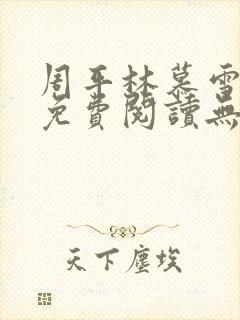 周平林慕雪
免費閱讀無
天下塵埃